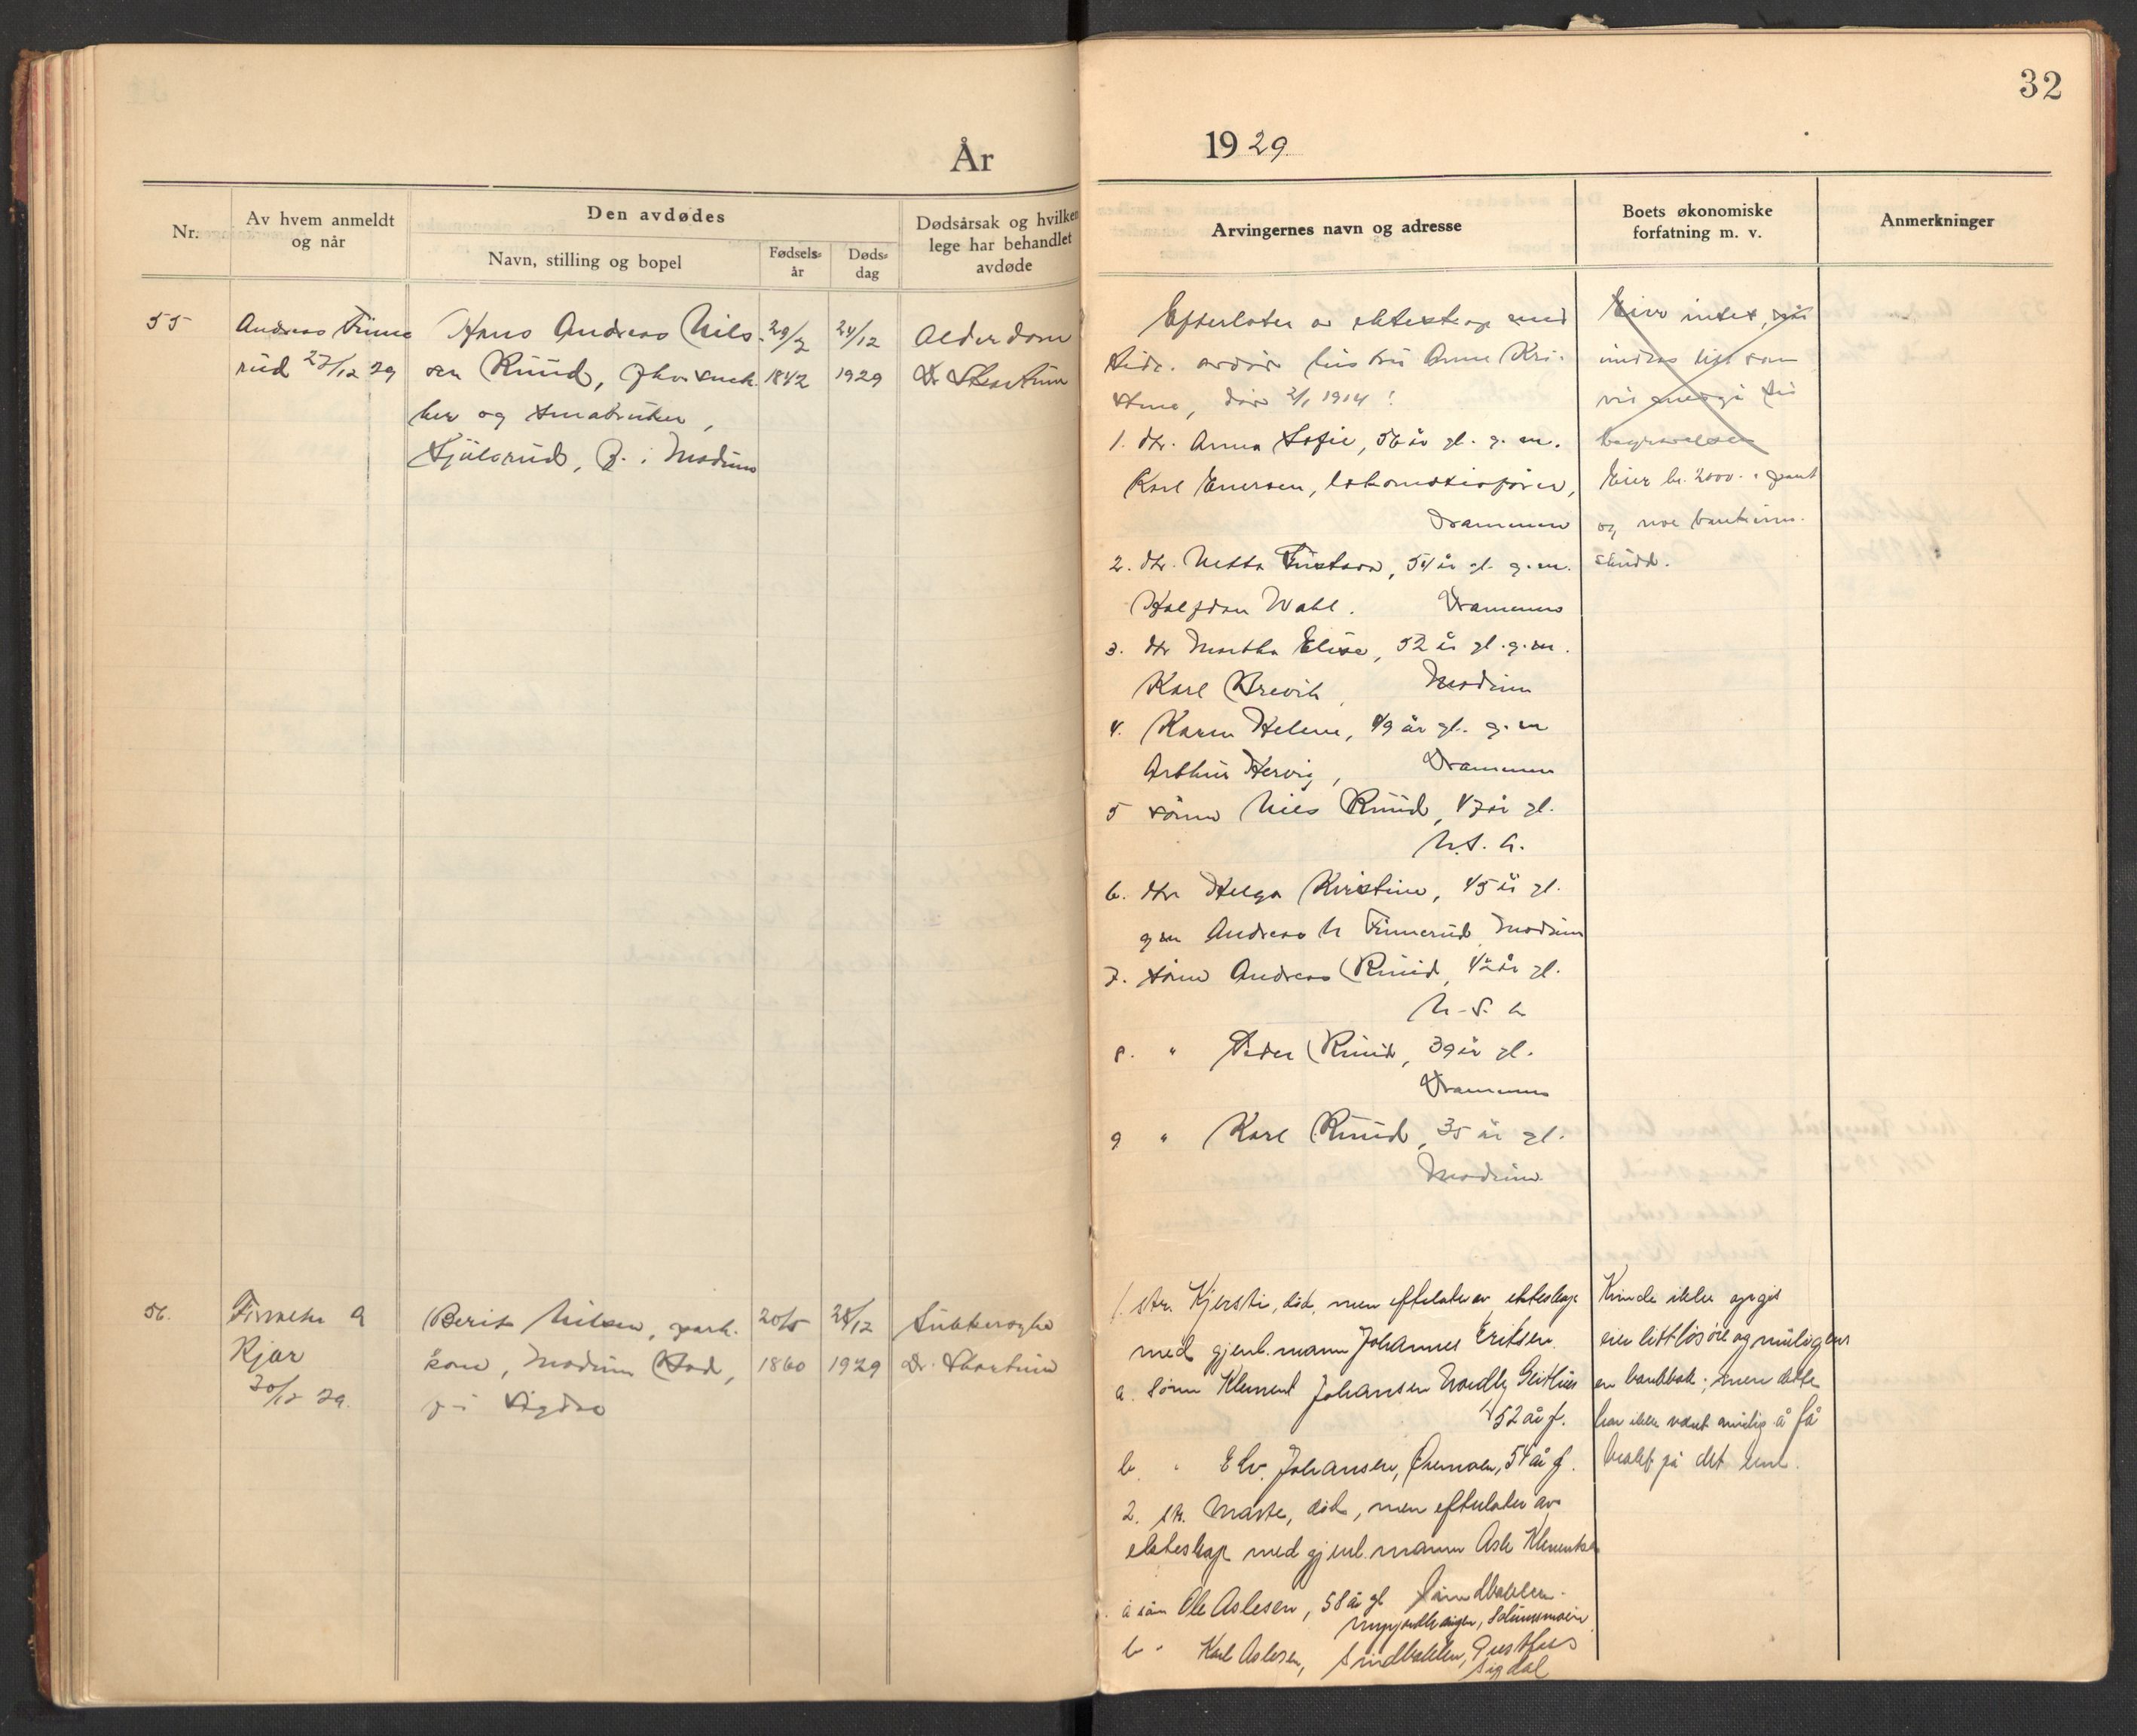 32
År
1929
Nr.
Av hvem anmeldt
og når
Den avdødes
Navn, stilling og bopel
Fødsels-
år
Døds-
dag
Dødsårsak og hvilken
lege har behandlet
avdøde
Arvingernes navn og adresse
Boets økonomiske
forfatning m. v.
Anmerkninger
55
Andreas Finne
rud 27/12 29
Hans Andreas Nils-
sen Ruud, fhv. snek
ker og småbruker,
i Modum
29/7
1842
24/12
1929
Alderdom
Dr
Efterlater av ekteskap med
tidl. avdøde hustru Anne Kri-
stine, død 2/1 1914:
1. dtr. Anna Sofie, 56 år gl. g. m.
Karl Enersen, lokomotivfører,
Drammen
2. dtr. Netta Gustava, 54 år gl. g. m.
Halfdan Wahl. Drammen
3. dtr Martha Elise, 52 år gl. g. m.
Karl Brevik, Modum
4. Karen Helene, 49 år gl. g. m
Arthur Hervig, Drammen
5 sønn Nils Ruud, 47 år gl.
U.S.A.
6. dtr Helga Kristine, 45 år gl.
g m Andreas N Finnerud Modum
7. sønn Andreas Ruud, 42 år gl.
U.S.A
8. " Peder Ruud, 39 år gl.
Drammen
9 " Karl Ruud, 35 år gl.
Modum
Eier intet,
undtas litt som
vil medgå til
begravelsen
Eier kr. 2000.- i pant
og noe bankinn-
skudd.
56.
A
Kjør
30/12 29.
Berit Nilsen,
kone, Modum Bad,
på Sigdal
20/5
1860
28/12
1929
Sukkersyke
Dr.
1. str. Kjersti, død, men efterlater av ekteskap
med gjenl. mann Johannes Eriksen.
a. sønn Klement Johansen Geithus
52 år g.
b. " Johansen, 54 år g.
2. str. Marte, død, men efterlater av
ekteskap med gjenl. mann Asle Klementsen
a sønn Ole Aslesen, 58 år gl
b " Karl Aslesen,
Sigdal
Kunde ikke opgis
eier litt løsøre og muligens
en bankbok, men dette
har ikke vært mulig å få
på det